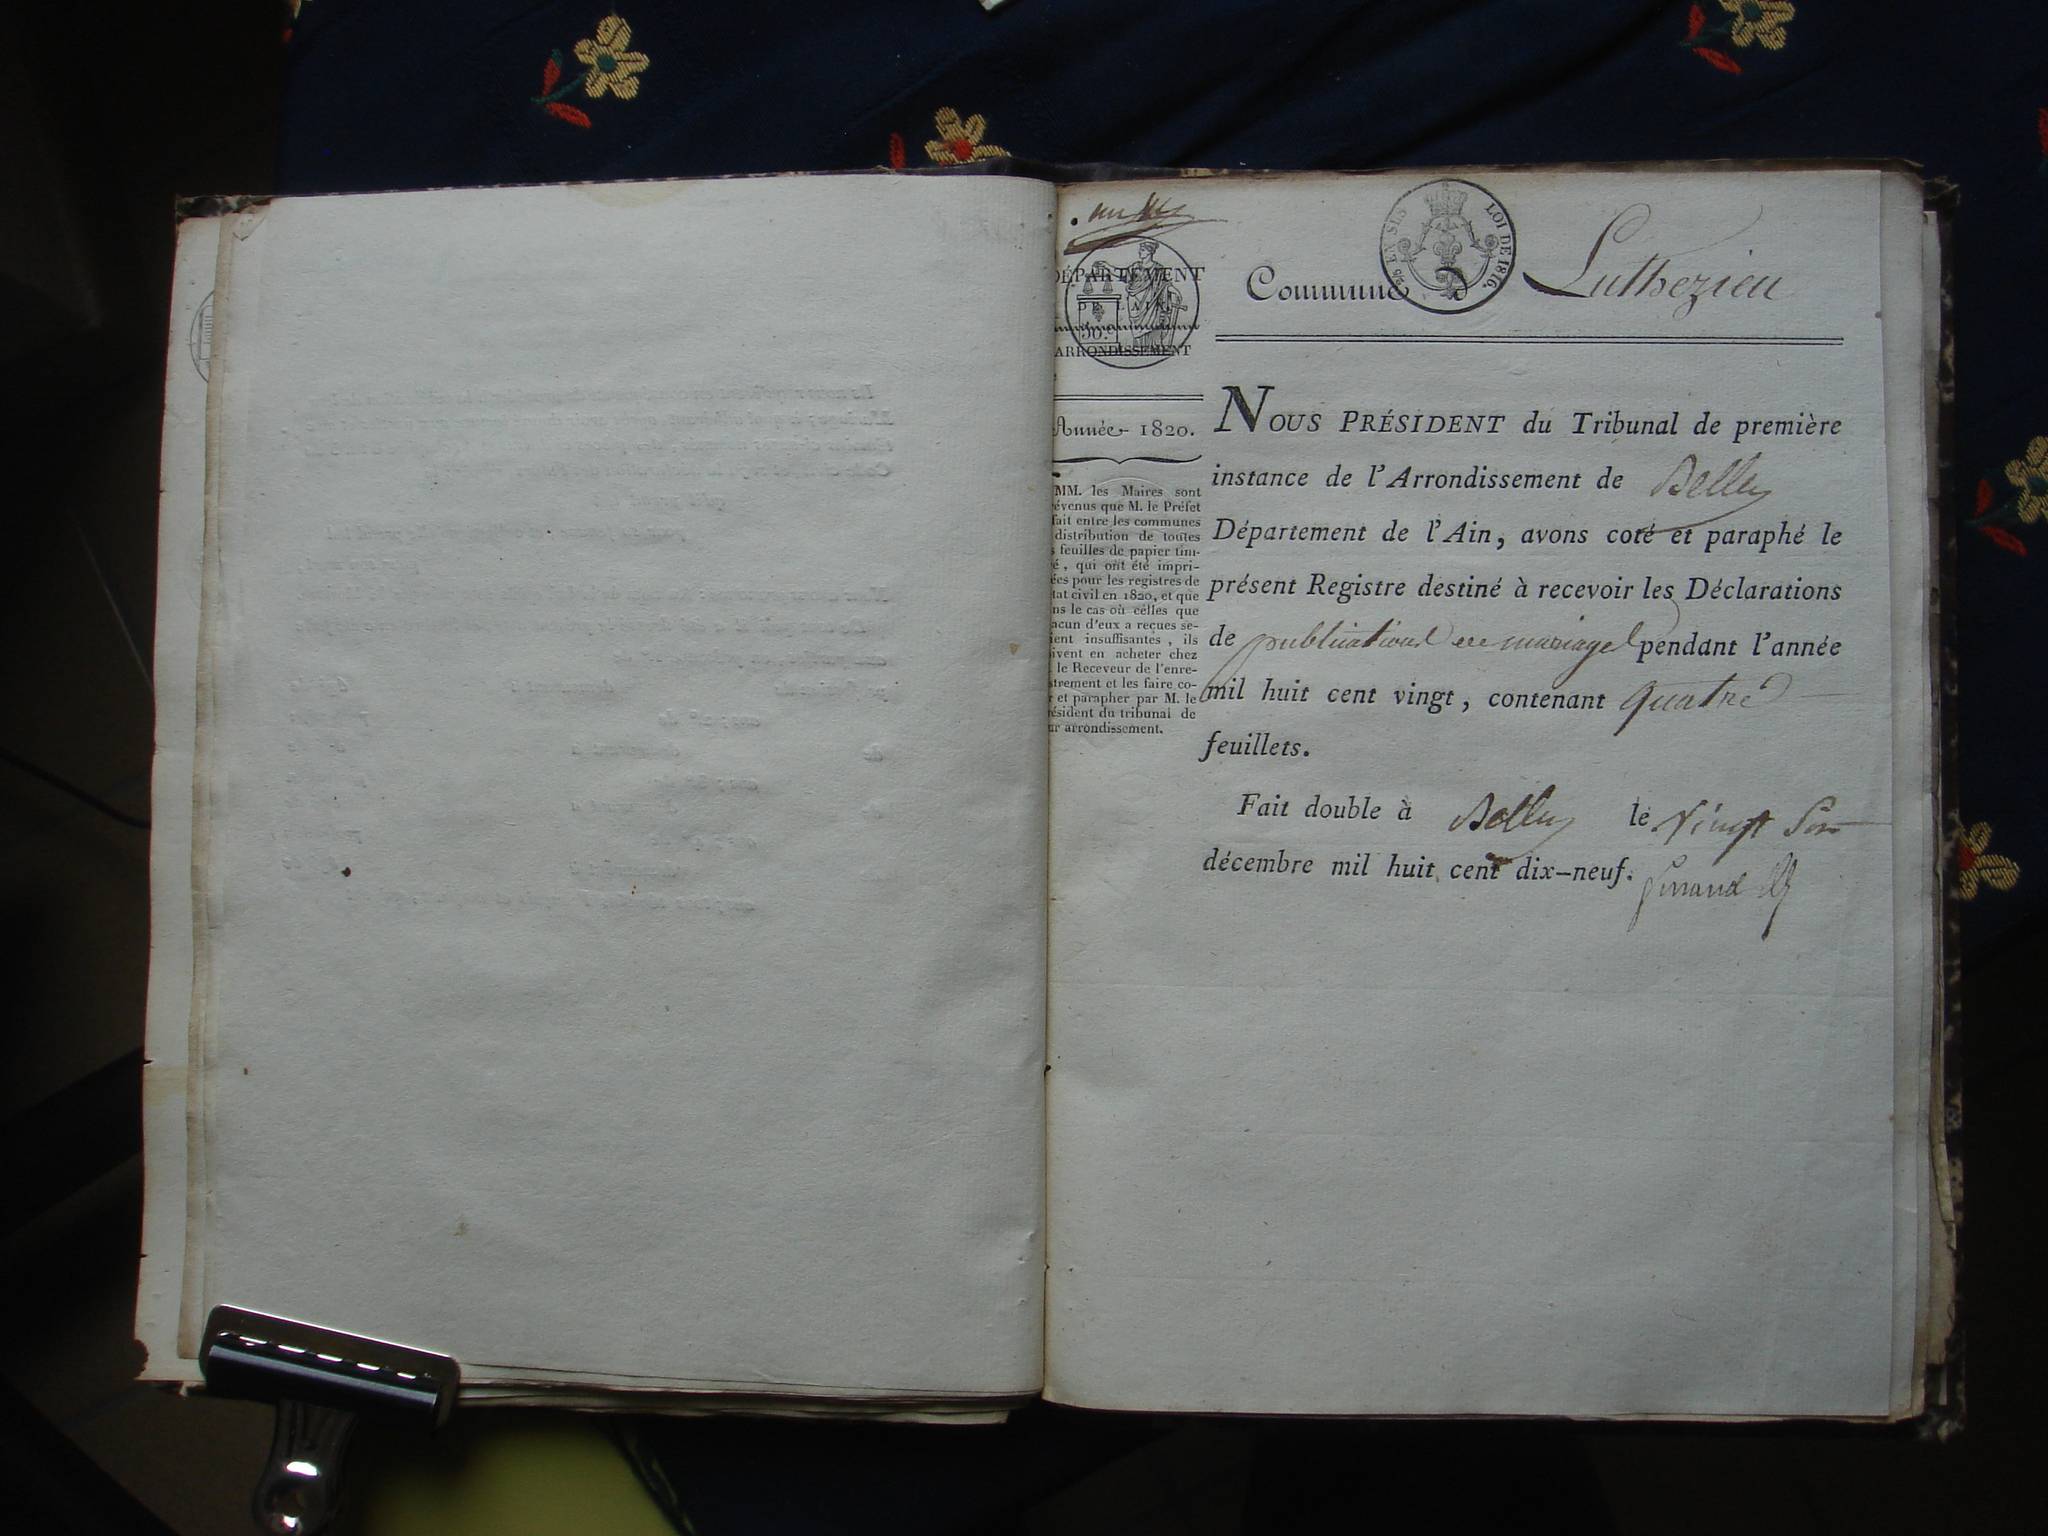 DÉPARTEMENT
DE L'AIN.
50.c
ARRONDISSEMENT
Année 1820.
MM. les Maires sont
révenus que M. le Préfet
fait entre les communes
distribution de toutes
s feuilles de papier tim-
ré, qui ont été impri-
ées pour les registres de
tat civil en 1820, et que
ns le cas où celles que
acun d'eux a reçues se-
ient insuffisantes, ils
ivent en acheter chez
le Receveur de l'enre-
strement et les faire co-
r et parapher par M. le
résident du tribunal de
ur arrondissement.
EN SUS LOI DE 1816.
Commune d Luthezieu
NOUS PRÉSIDENT du Tribunal de première
instance de l'Arrondissement de Belley
Département de l'Ain, avons coté et paraphé le
présent Registre destiné à recevoir les Déclarations
de publications de mariages pendant l'année
mil huit cent vingt, contenant quatre
feuillets.
Fait double à Belley le vingt
décembre mil huit cent dix-neuf.